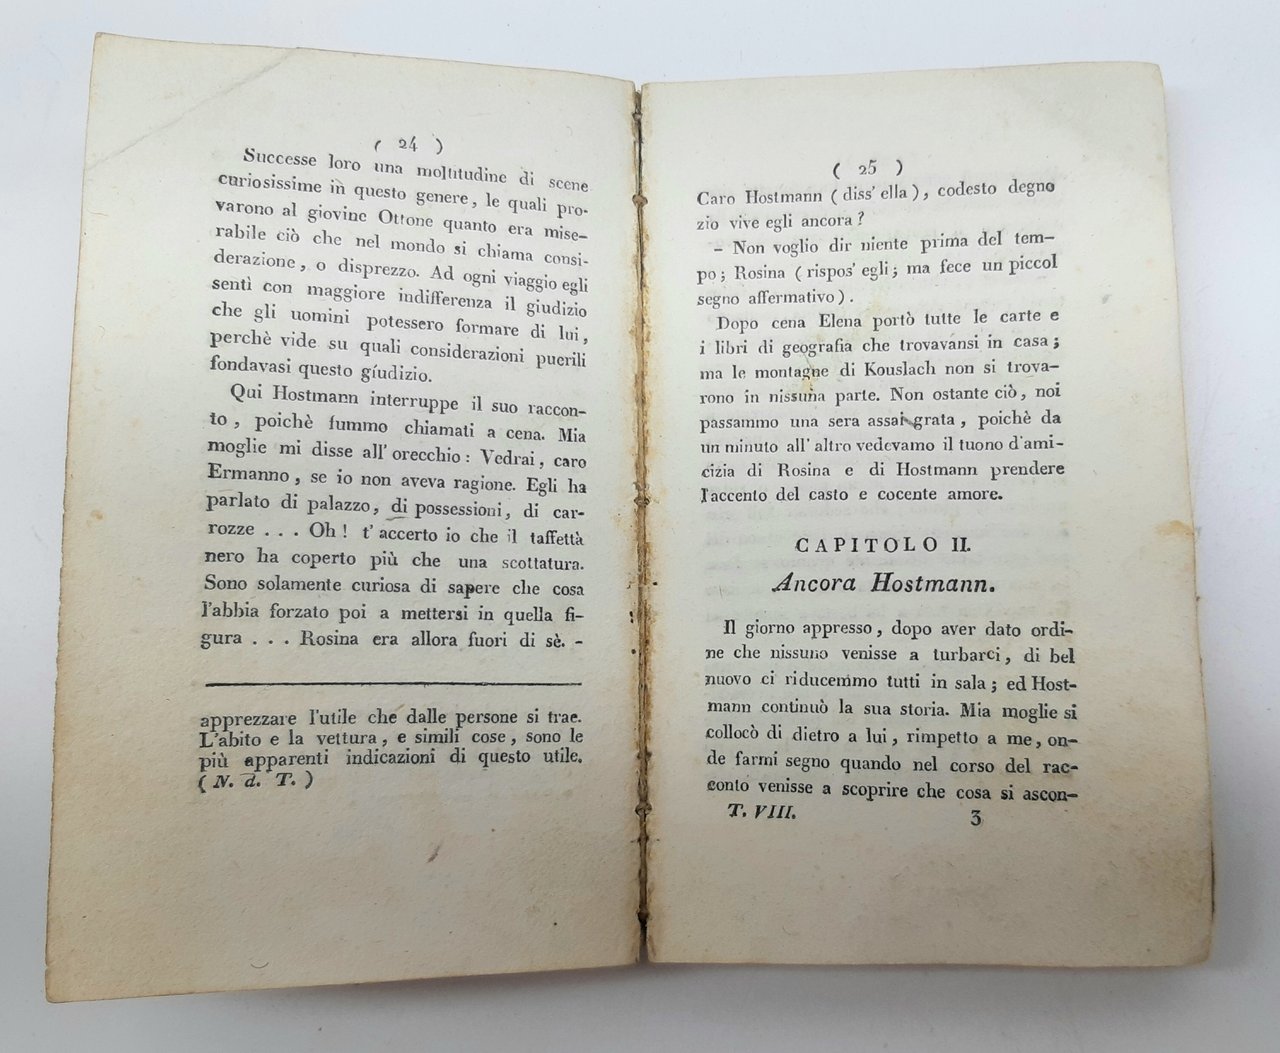 ( 24 )
Successe loro una moltitudine di scene
curiosissime in questo genere, le quali pro-
varono al giovine Ottone quanto era mise-
rabile ciò che nel mondo si chiama consi-
derazione, o disprezzo. Ad ogni viaggio egli
sentì con maggiore indifferenza il giudizio
che gli uomini potessero formare di lui,
perchè vide su quali considerazioni puerili
fondavasi questo giudizio.
Qui Hostmann interruppe il suo raccon-
to, poichè fummo chiamati a cena. Mia
moglie mi disse all' orecchio: Vedrai, caro
Ermanno, se io non aveva ragione. Egli ha
parlato di palazzo, di possessioni, di car-
rozze . . . Oh! t' accerto io che il taffettà
nero ha coperto più che una scottatura.
Sono solamente curiosa di sapere che cosa
l'abbia forzato poi a mettersi in quella fi-
gura . . . Rosina era allora fuori di sè. -
apprezzare l'utile che dalle persone si trae.
L'abito e la vettura, e simili cose, sono le
più apparenti indicazioni di questo utile.
( N. d. T. )
( 25 )
Caro Hostmann ( diss' ella ), codesto degno
zio vive egli ancora?
- Non voglio dir niente prima del tem-
po; Rosina ( rispos' egli; ma fece un piccol
segno affermativo ).
Dopo cena Elena portò tutte le carte e
i libri di geografia che trovavansi in casa;
ma le montagne di Kouslach non si trova-
rono in nissuna parte. Non ostante ciò, noi
passammo una sera assai grata, poichè da
un minuto all' altro vedevamo il tuono d'ami-
cizia di Rosina e di Hostmann prendere
l'accento del casto e cocente amore.
CAPITOLO II.
Ancora Hostmann.
Il giorno appresso, dopo aver dato ordi-
ne che nissuno venisse a turbarci, di bel
nuovo ci riducemmo tutti in sala; ed Host-
mann continuò la sua storia. Mia moglie si
collocò di dietro a lui, rimpetto a me, on-
de farmi segno quando nel corso del rac-
conto venisse a scoprire che cosa si ascon-
T. VIII. 3